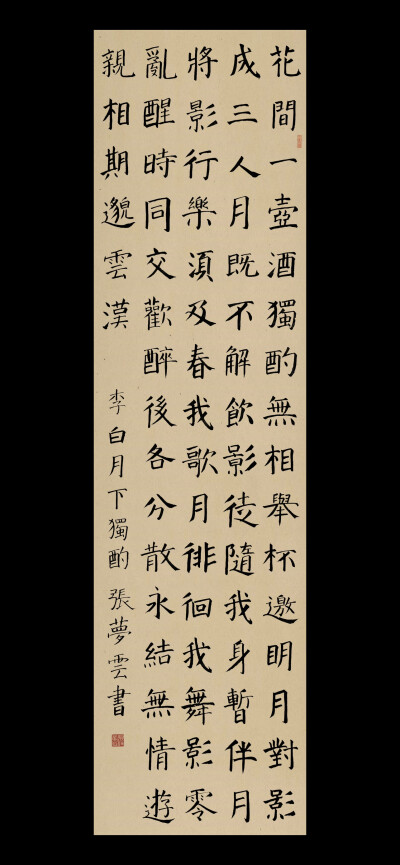 花間一壺酒獨酌無相舉杯邀明月對影
成三人月既不解飲影徒隨我身暫伴月
將影行樂須及春我歌月徘徊我舞影零
亂醒時同交歡醉後各分散永結無情遊
親相期邈雲漢 李白月下獨酌 張夢雲書